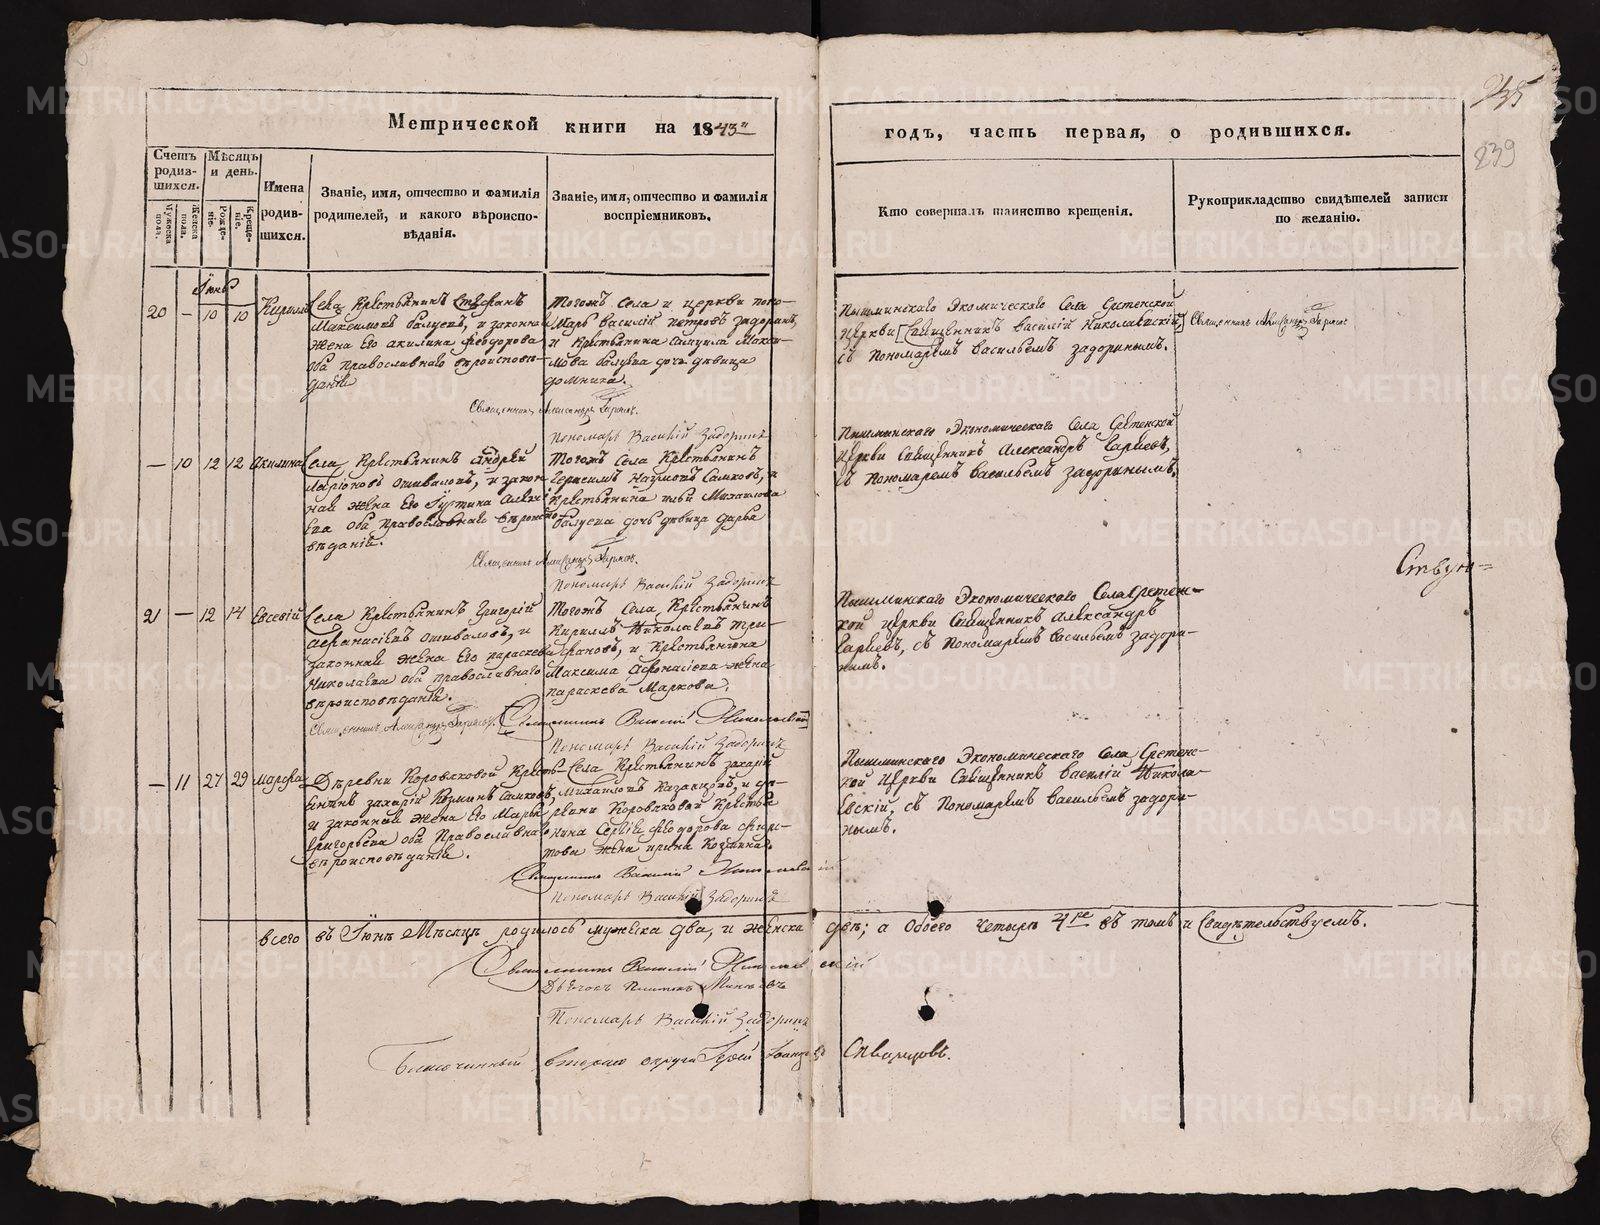 235
239
Метрической книги на 1843й
годъ, часть первая, о родившихся.
Счетъ родив-
шихся.
Мужеска пола.
Женска пола.
Мѣсяцъ
и день.
Рожде-
нiе.
Креще-
нiе.
Имена
родив-
шихся.
Званiе, имя, отчество и фамилiя
родителей, и какого вѣроиспо-
вѣданiя.
Званiе, имя, отчество и фамилiя
воспрiемниковъ.
Кто совершалъ таинство крещенiя.
Рукоприкладство свидѣтелей записи
по желанiю.
Iюнь
20 — 10 10 Кирилъ
Села Крестьянинъ Стефанъ
Максимовъ балуевъ, и законная
жена его акилина феодорова
оба православнаго вѣроисповѣ-
данiя
Тогожъ Села и церкви поно-
марь василiй петровъ задоринъ,
и Крестьянина Самуила Макси-
мова балуева дочь дѣвица
домника.
Священникъ Александръ Гаряевъ.
Пономарь Василiй Задоринъ
Пышминскаго Экономическаго Села Сретенской
Церкви Священникъ Василiй Николаевскiй
съ Пономаремъ Васильемъ задоринымъ.
Священникъ Александръ Гаряевъ
— 10 12 12 Акилина
Села Крестьянинъ Андрей
Ларiоновъ ошиваловъ, и закон-
ная жена его Iустина Алекси-
ева оба православнаго вѣроиспо-
вѣданiя.
Тогожъ Села Крестьянинъ
Герасимъ Наумовъ Самковъ, и
Крестьянина Михаилова
балуева дочь дѣвица дарья
Священникъ Александръ Гаряевъ.
Пономарь Василiй Задоринъ
Пышминскаго Экономическаго Села Сретенской
Церкви Священникъ Александръ Гаряевъ,
съ Пономаремъ Васильемъ задоринымъ.
21 — 12 14 Евсевiй
Села Крестьянинъ Григорiй
афанасiевъ ошиваловъ, и
законная жена его параскева
Николаева оба православнаго
вѣроисповѣданiя.
Тогожъ Села Крестьянинъ
Кириллъ Николаевъ Три-
фановъ, и Крестьянина
Максима Афонасiева жена
параскева Маркова.
Священникъ Александръ Гаряевъ.
Священникъ Василiй Николаевскiй
Пономарь Василiй Задоринъ
Пышминскаго Экономическаго Села Сретен-
ской церкви Священникъ Александръ
Гаряевъ, съ Пономаремъ Васильемъ задори-
нымъ.
— 11 27 29 Марфа
Деревни Коровяковой Кресть-
янинъ захарiй Козминъ Самковъ,
и законная жена его Марья
Григорьева оба Православнаго
вѣроисповѣданiя.
Села Крестьянинъ захарiй
Михаиловъ Казанцовъ, и де-
ревни Коровяковой Крестья-
нина Сергiя феодорова
жена ирина Козмина.
Священникъ Василiй Николаевскiй
Пономарь Василiй Задоринъ
Пышминскаго Экономическаго Села Сретен-
ской Церкви Священникъ Василiй Никола-
евскiй, съ Пономаремъ Васильемъ задори-
нымъ.
всего въ Iюнѣ Мѣсяцѣ родилось мужеска два, и женска двѣ; а обоего четыре 4ре въ томъ и Свидѣтельствуемъ.
Священникъ Василiй Николаевскiй
Дьячокъ
Пономарь Василiй Задоринъ
Благочинный втораго округа Iерей Iоаннъ